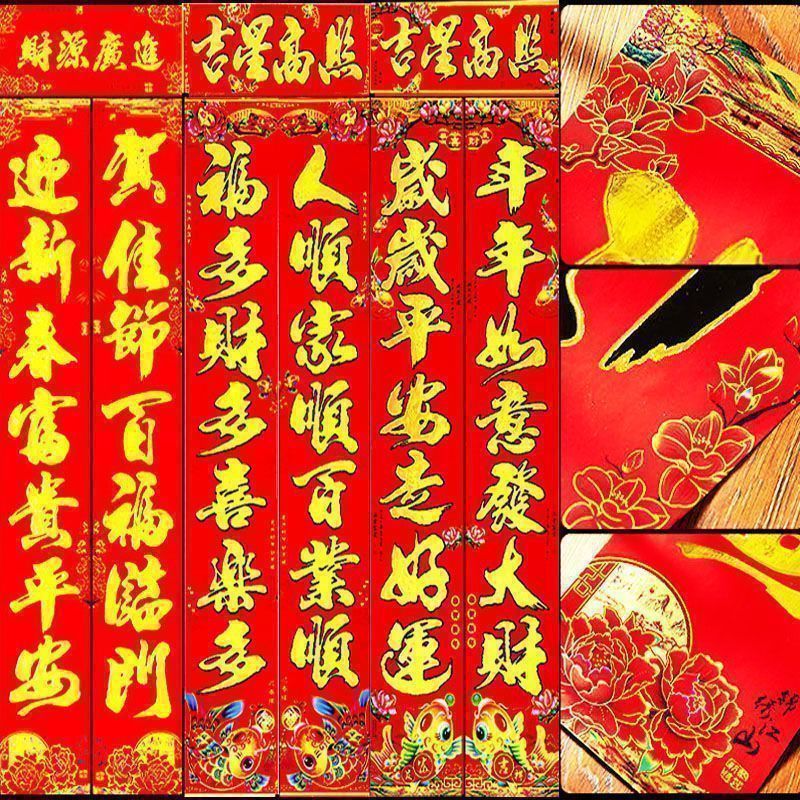 財源廣進
賀佳節百福臨門
迎新春富貴平安
吉星高照
人順家順百業順
福多財多喜樂多
吉星高照
年年如意發大財
歲歲平安走好運